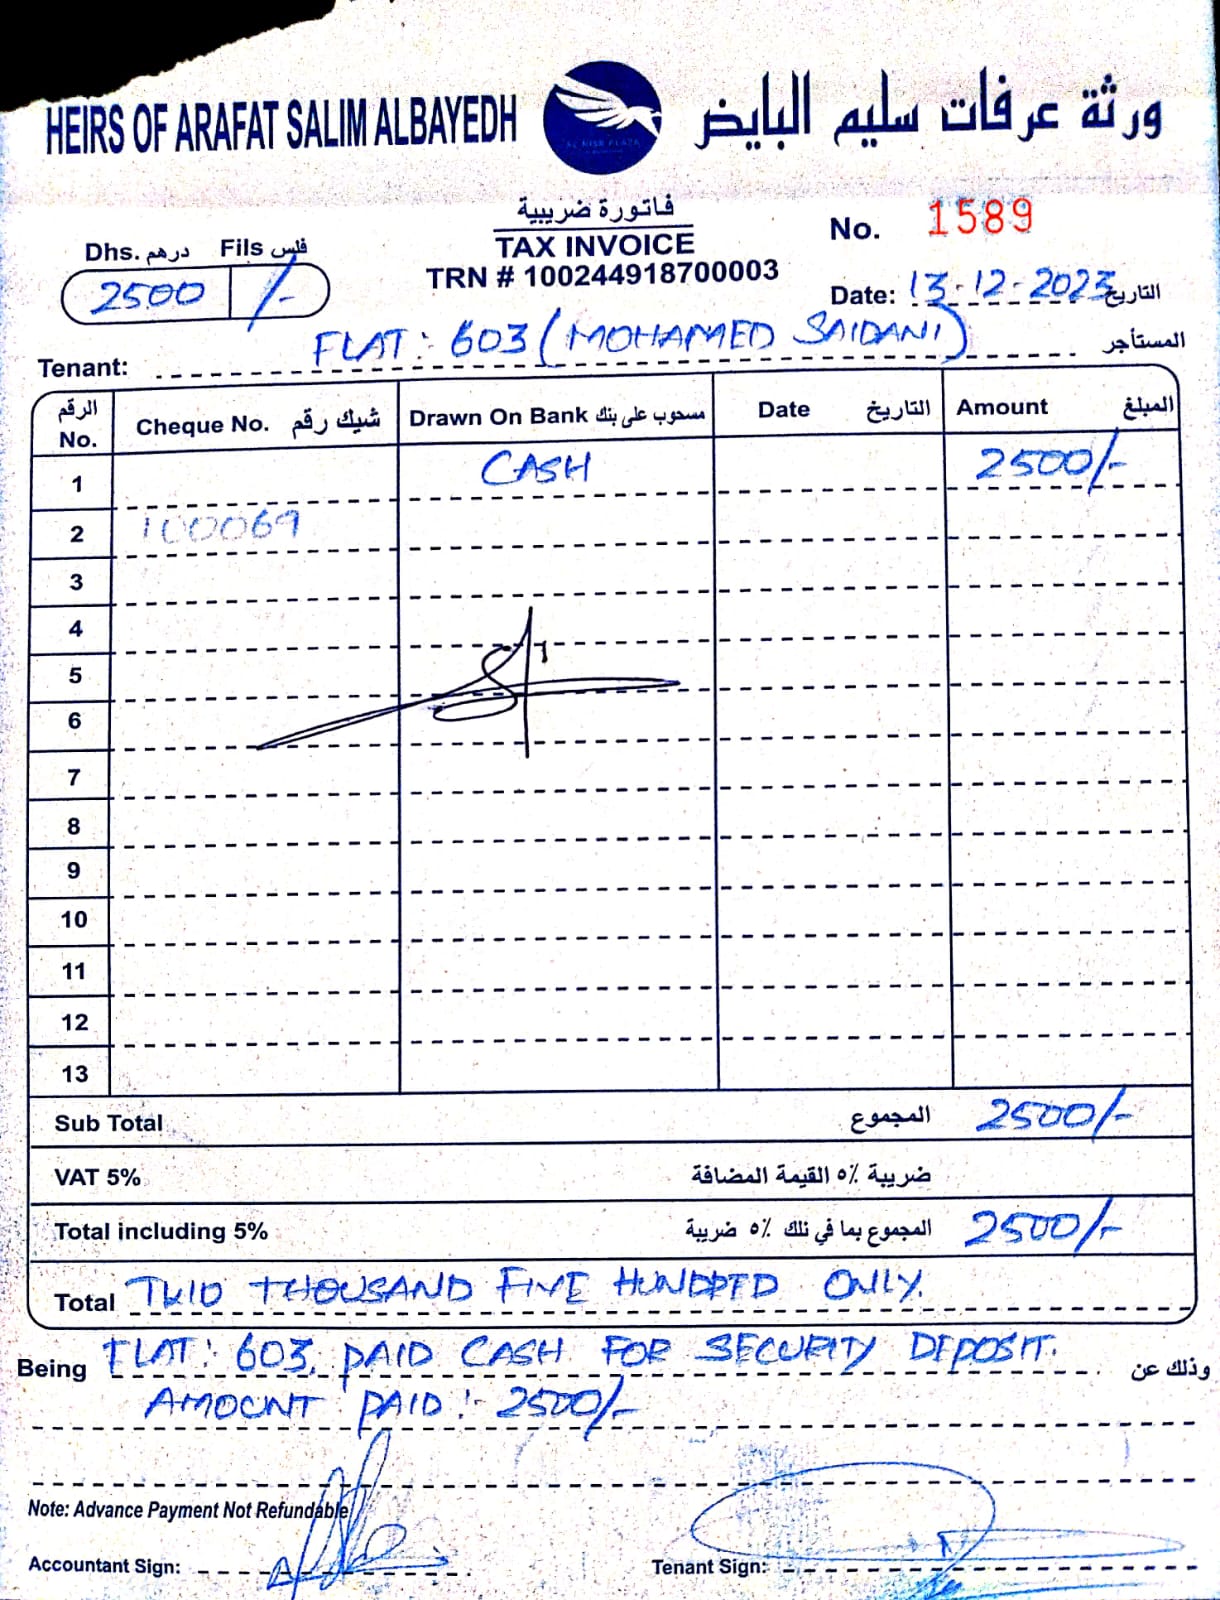 HEIRS OF ARAFAT SALIM ALBAYEDH ورثة عرفات سليم البايض
AL NISR PLAZA
فاتورة ضريبية
TAX INVOICE
TRN # 100244918700003
No. 1589
Dhs. درهم Fils فلس
2500 /-
Date: 13-12-2023 التاريخ
Tenant: FLAT: 603 (MOHAMED SAIDANI) المستأجر
الرقم No. Cheque No. شيك رقم Drawn On Bank مسحوب على بنك Date التاريخ Amount المبلغ
1 CASH 2500/-
2 100069
3
4
5
6
7
8
9
10
11
12
13
Sub Total المجموع 2500/-
VAT 5% ضريبة ٥٪ القيمة المضافة
Total including 5% المجموع بما في ذلك ٥٪ ضريبة 2500/-
Total TWO THOUSAND FIVE HUNDRED ONLY.
Being FLAT: 603. PAID CASH FOR SECURITY DEPOSIT. وذلك عن
AMOUNT PAID :- 2500/-
Note: Advance Payment Not Refundable
Accountant Sign: Tenant Sign: